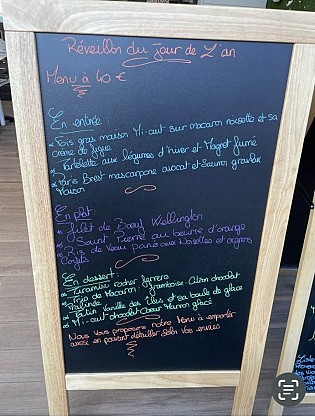 Réveillon du jour de L'an
Menu à 40 €
En entrée :
Fois gras maison Mi-cuit sur macaron noisette et sa
crème de figue
Tartelette aux légumes d'hiver et Magret fumé
Paris Brest mascarpone avocat et Saumon gravlax
maison
En plat :
Filet de Bœuf Wellington
Saint Pierre au beurre d'orange
Ris de Veau panés aux Noisettes et oignons
Confits
En dessert :
Tiramisu rocher ferrero
Trio de Macaron : framboise - Citron chocolat
Praliné
Tatin Vanille des îles et sa boule de glace
Mi-cuit chocolat Cœur Marron glacé
Nous vous proposons notre Menu à emporter
aussi en pouvant détailler selon vos envies